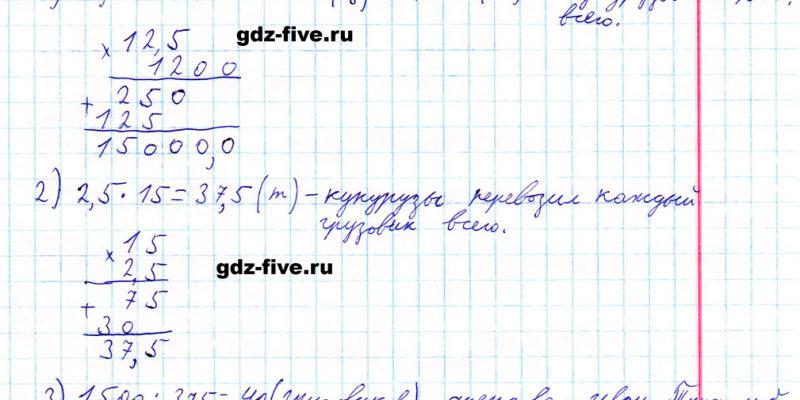 всего.
× 12,5
gdz-five.ru
1200
+ 250
125
15000,0
2) 2,5 · 15 = 37,5 (т) - кукурузы перевозил каждый
грузовик всего.
× 15
2,5
gdz-five.ru
+ 75
30
37,5